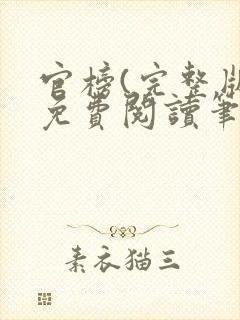 官榜(完整版
免費閱讀筆
素衣猫三